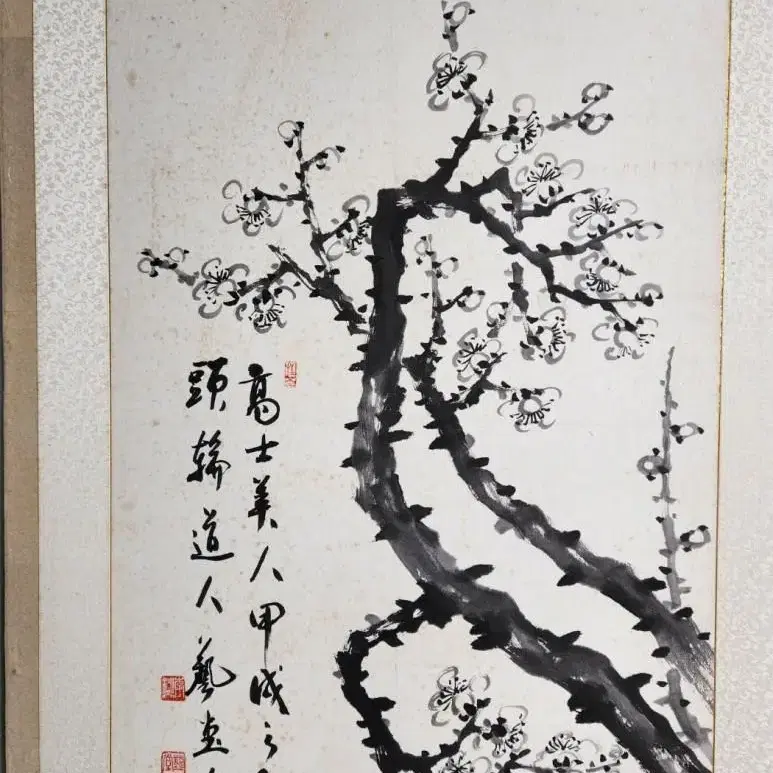 高士美人甲戌之
頭輪道人藝